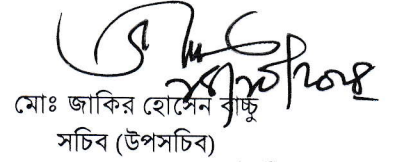 মোঃ জাকির হোসেন বাচ্চু
সচিব (উপসচিব)